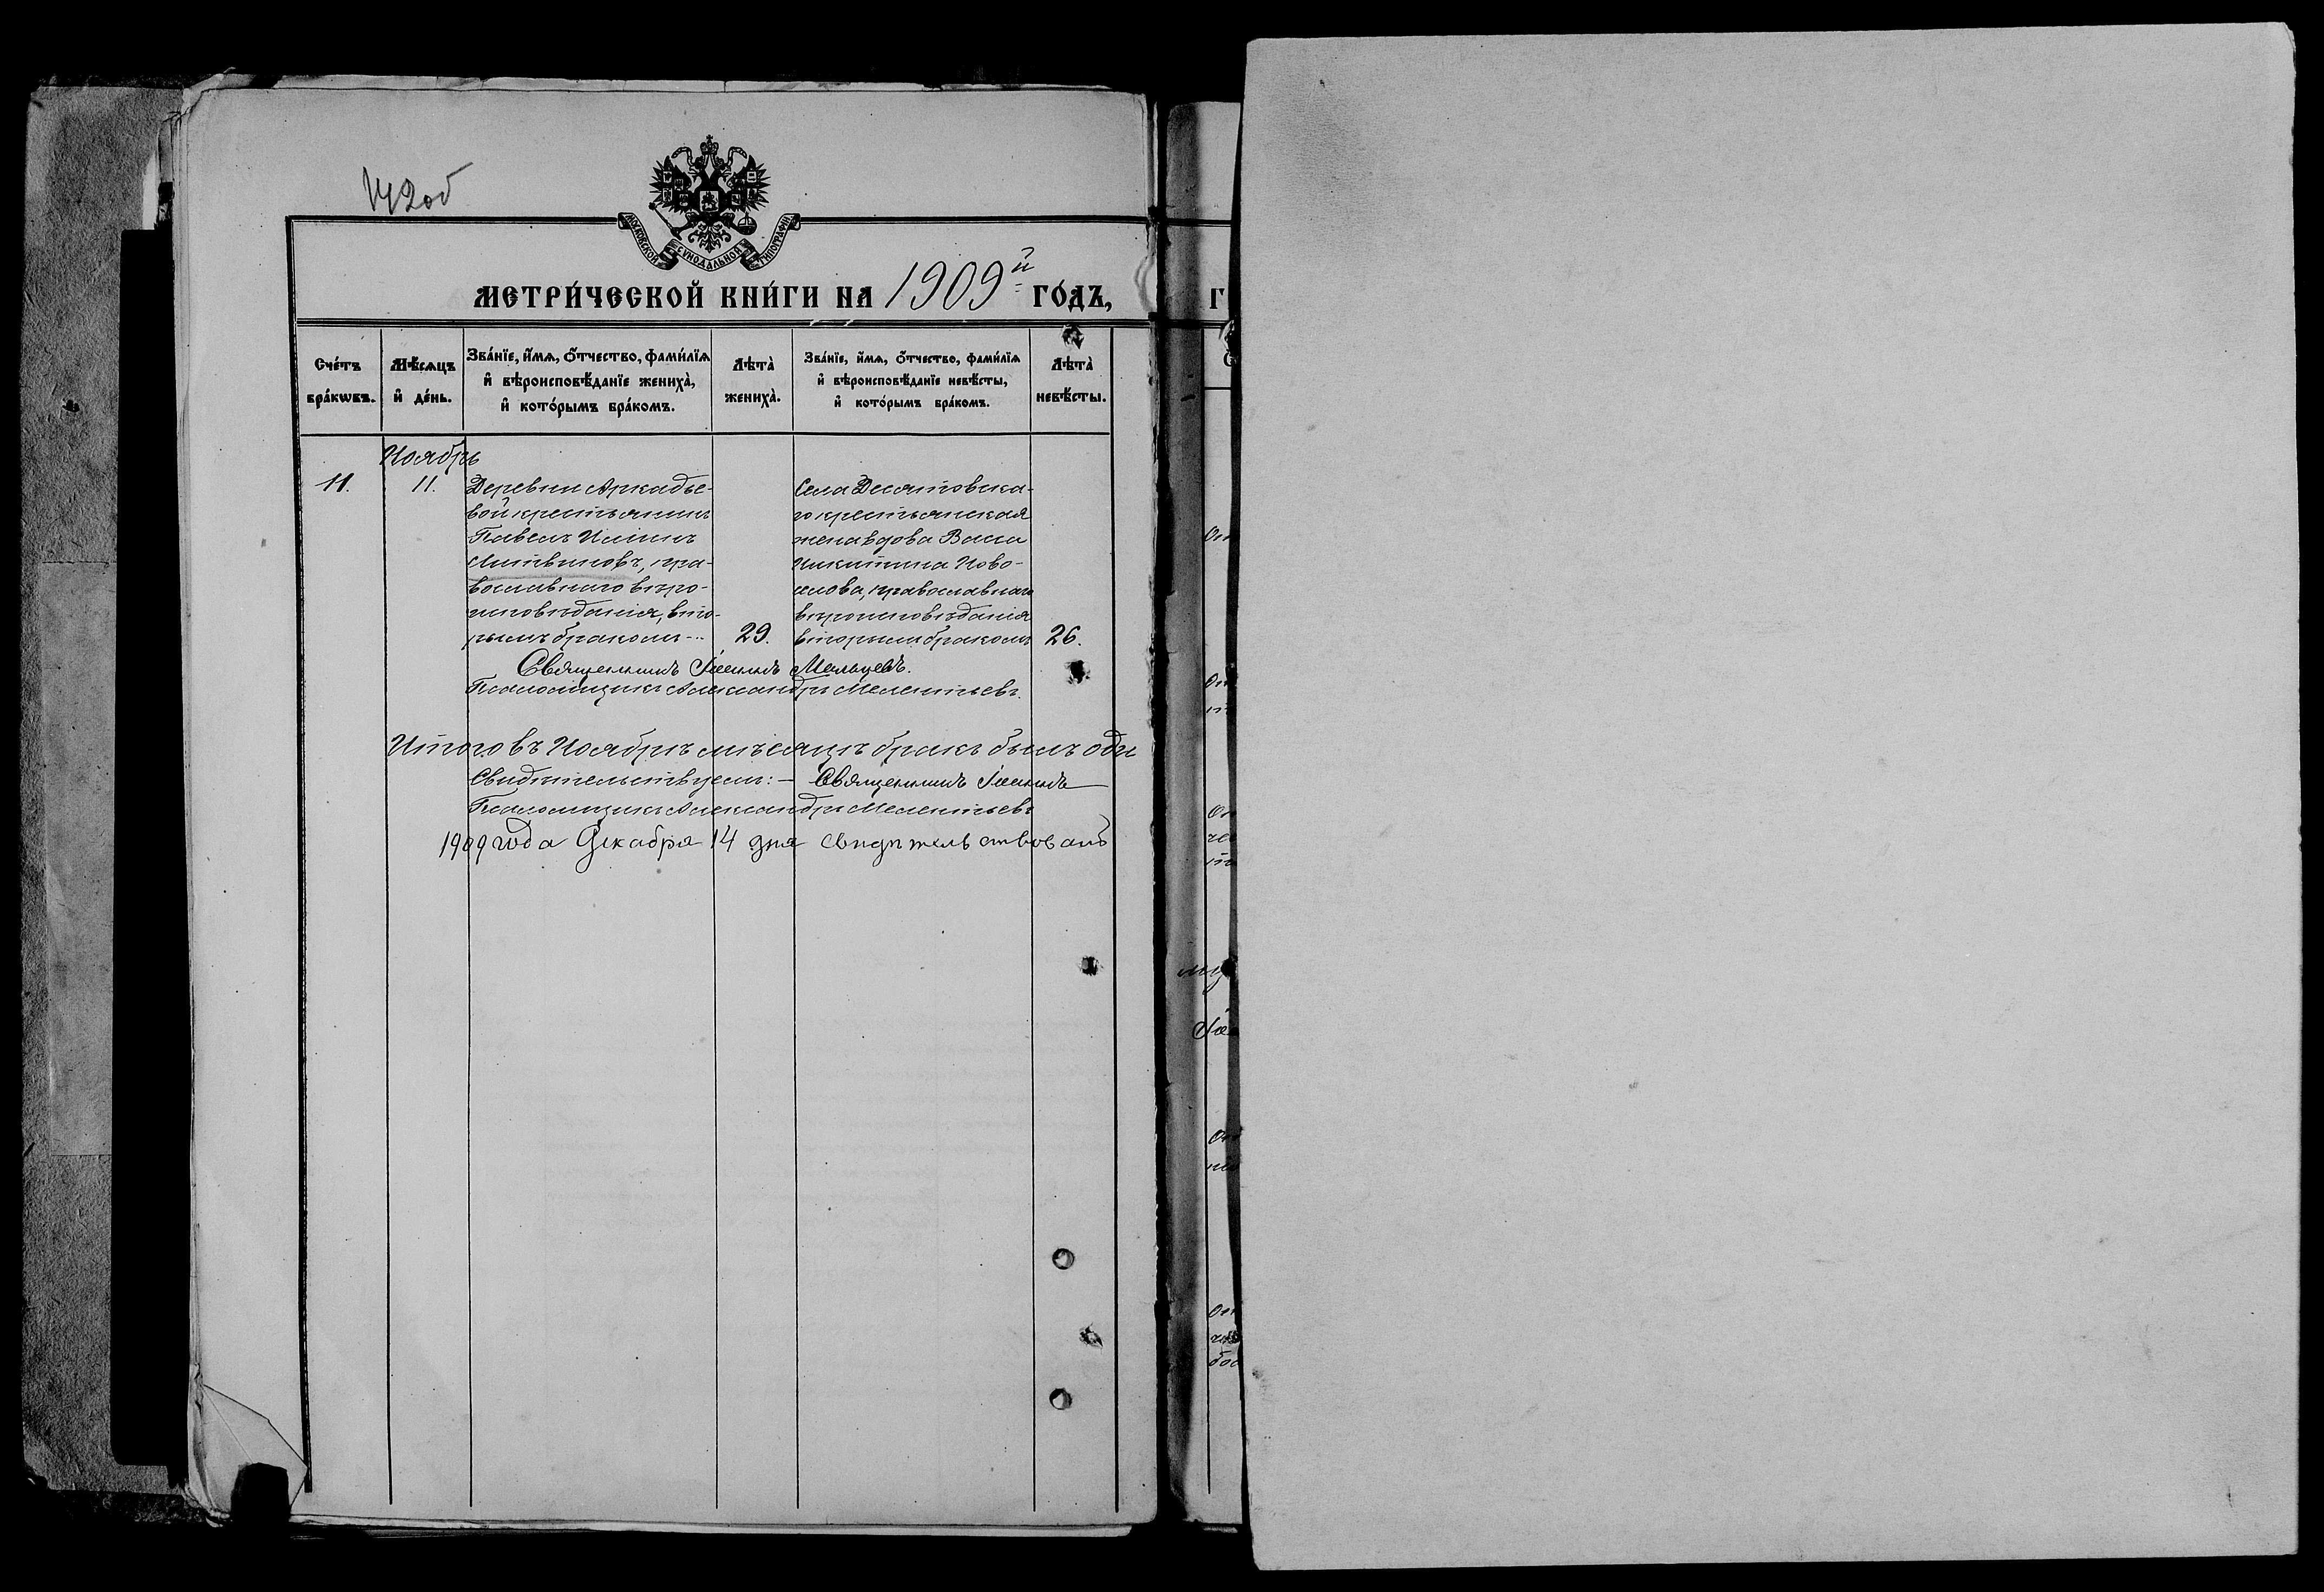 142 об
МОСКОВСКОЙ СУНОДАЛЬНОЙ ТИПОГРАФІИ
МЕТРИ́ЧЕСКОЙ КНИ́ГИ НА 1909й ГО́ДЪ,
Сче́тъ бра́кѡвъ.
Мѣ́сѧцъ и҆ де́нь.
Зва́нїе, и҆́мѧ, ѻ҆́тчество, фами́лїѧ и҆ вѣроисповѣ́данїе жениха̀, и҆ кото́рымъ бра́комъ.
Лѣта̀ жениха̀.
Зва́нїе, и҆́мѧ, ѻ҆́тчество, фами́лїѧ и҆ вѣроисповѣ́данїе невѣ́сты, и҆ кото́рымъ бра́комъ.
Лѣта̀ невѣ́сты.
Ноябрь
11. 11.
Деревни Аркадье-
вой крестьянинъ
Павелъ Илiинъ
Литвиновъ, пра-
вославнаго вѣро-
исповѣданія, вто-
рымъ бракомъ
29.
Села Десятовска-
го крестьянская
жена вдова Васса
Никитина Ново-
селова, православнаго
вѣроисповѣданія
вторымъ бракомъ
26.
Священникъ Іоаннъ Мальцевъ.
Псаломщикъ Александръ Мелентьевъ.
Итого въ Ноябрѣ мѣсяцѣ бракъ былъ оди
Свидѣтельствуемъ: — Священникъ Іоаннъ
Псаломщикъ Александръ Мелентьевъ
1909 года Декабря 14 дня свидѣтельствовалъ